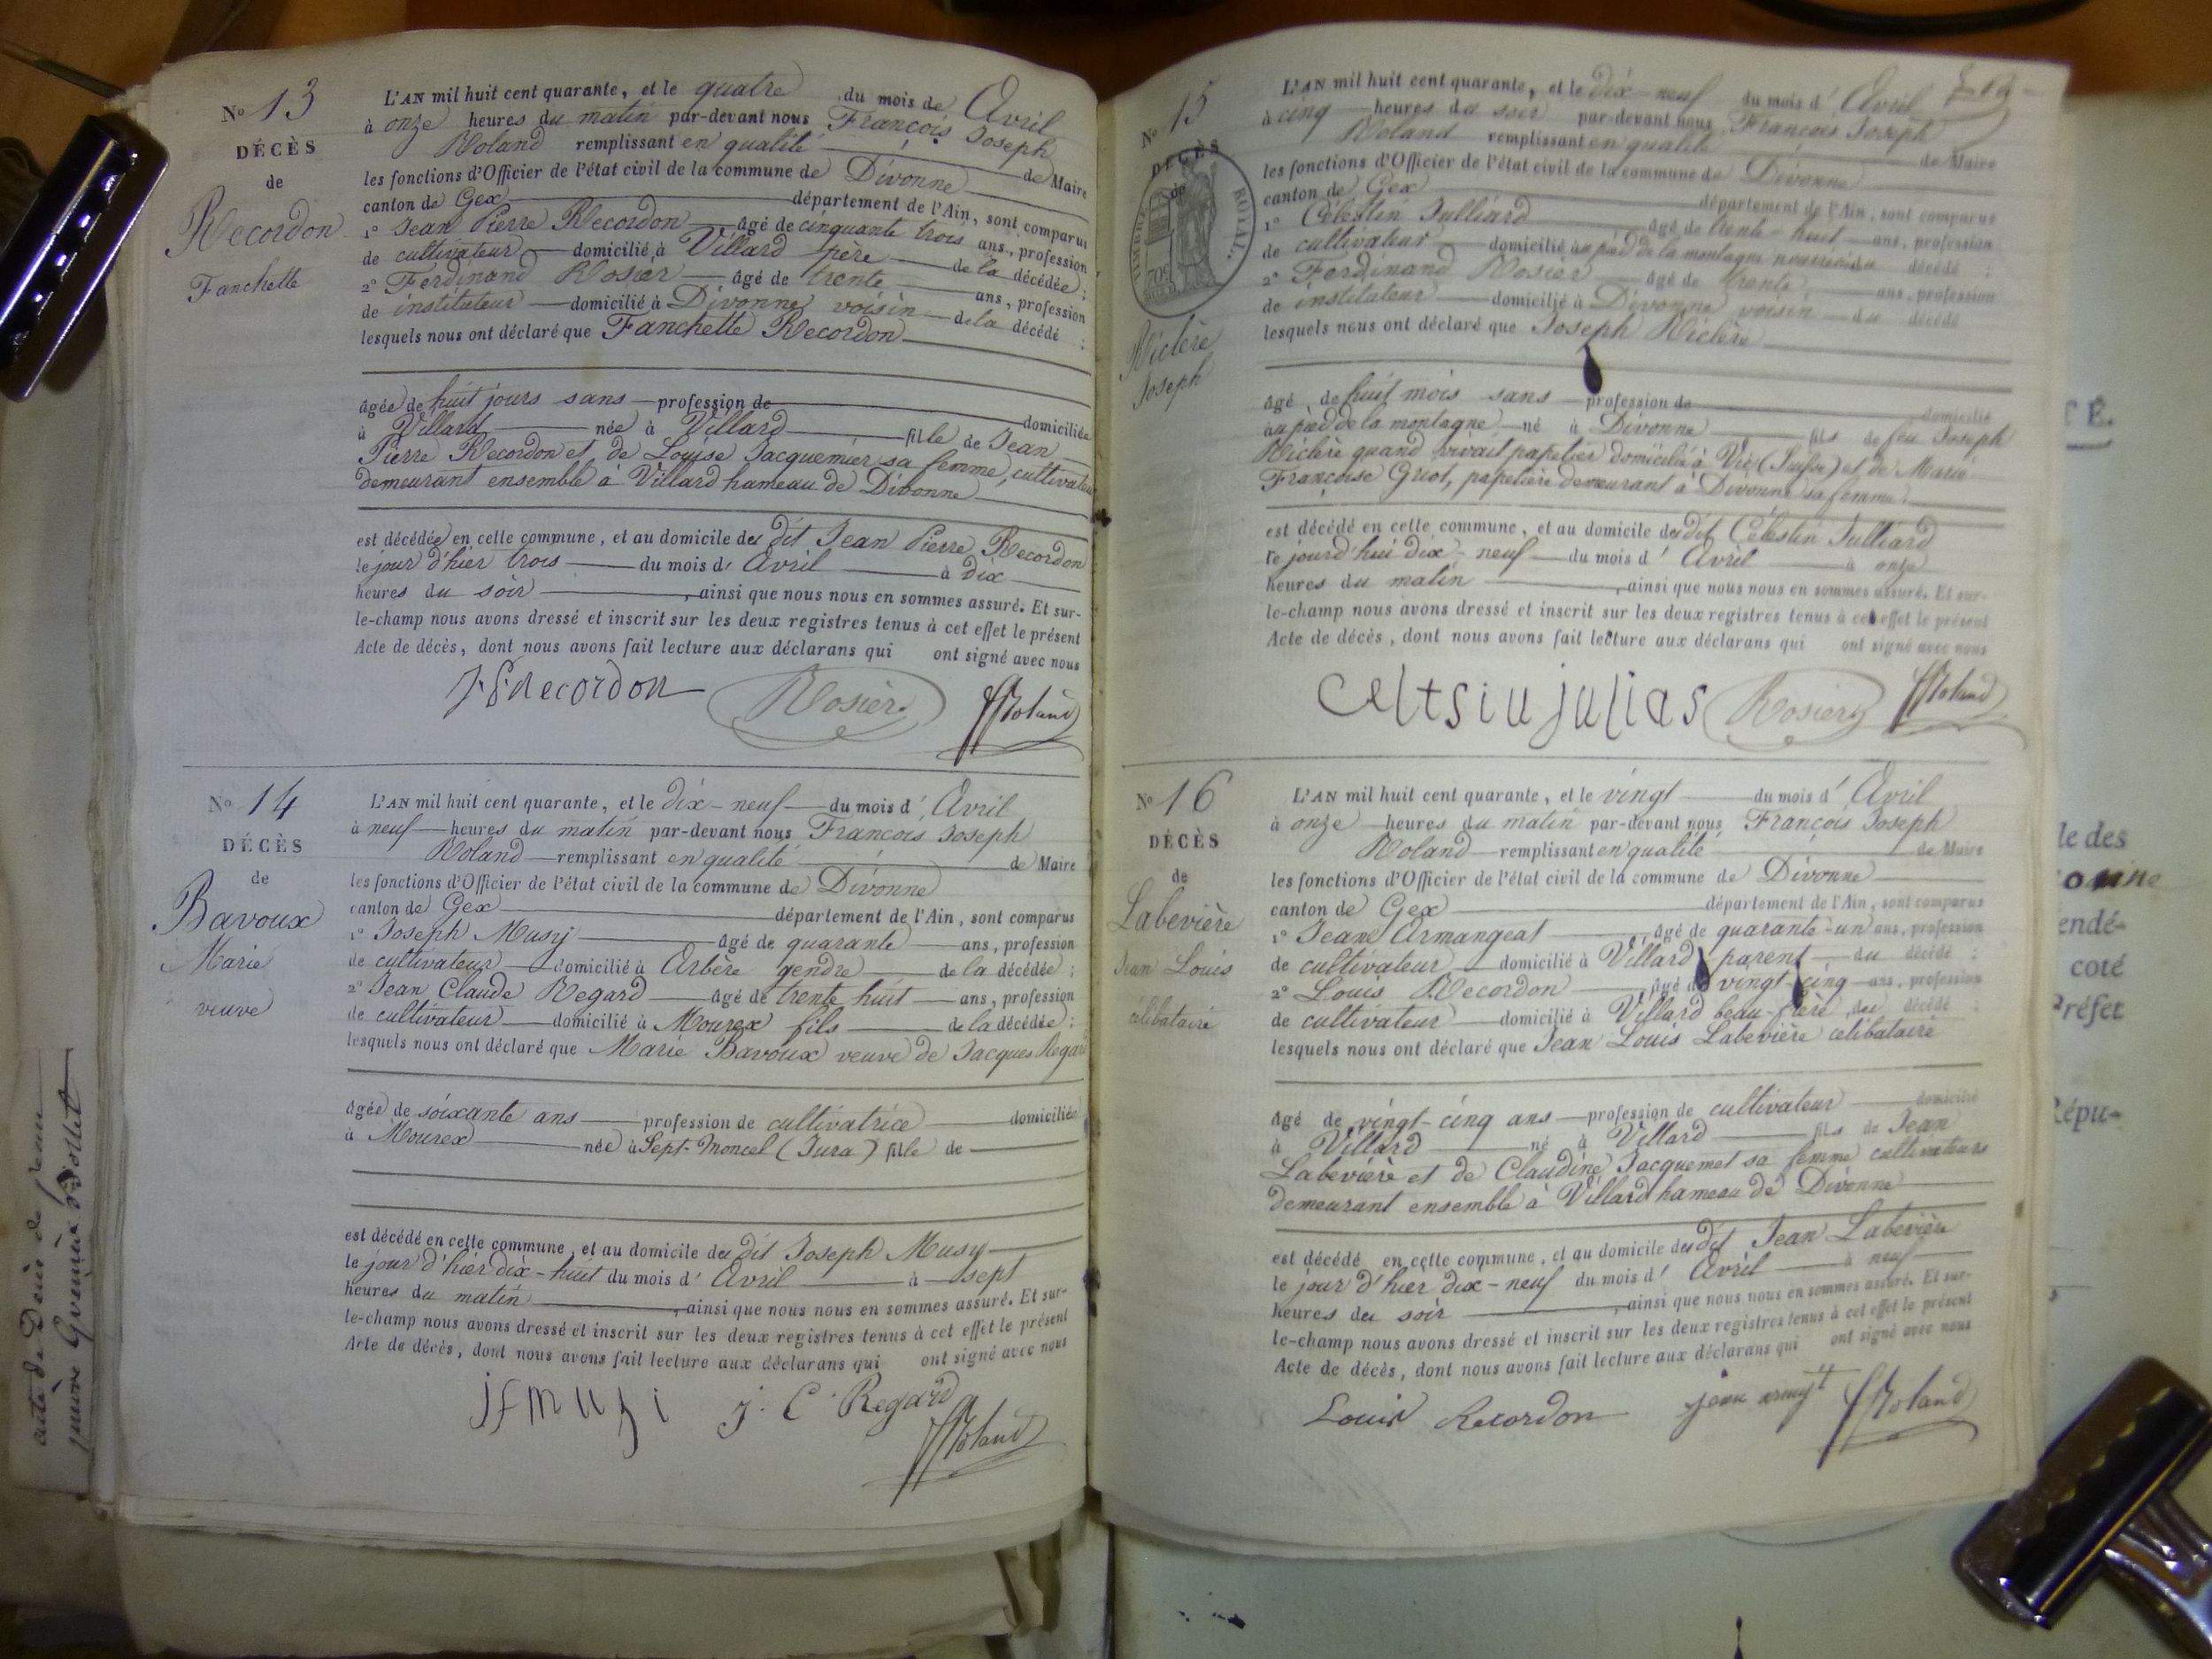 No 13
DÉCÈS
de
Recordon
Fanchette
L'AN mil huit cent quarante, et le quatre du mois de Avril
à onze heures du matin par-devant nous François Joseph
Roland remplissant en qualité de Maire
les fonctions d'Officier de l'état civil de la commune de Divonne
canton de Gex département de l'Ain, sont comparus
1° Jean Pierre Recordon âgé de cinquante trois ans, profession
de cultivateur domicilié à Villard père de la décédée;
2° Ferdinand Rosier âgé de trente ans, profession
de instituteur domicilié à Divonne voisin de la décédé;
lesquels nous ont déclaré que Fanchette Recordon
âgée de huit jours sans profession de domiciliée
à Villard née à Villard fille de Jean
Pierre Recordon et de Louise Jacquemier sa femme, cultivateurs
demeurant ensemble à Villard hameau de Divonne
est décédée en cette commune, et au domicile du dit Jean Pierre Recordon
le jour d'hier trois du mois d' Avril à dix
heures du soir, ainsi que nous nous en sommes assuré. Et sur-
le-champ nous avons dressé et inscrit sur les deux registres tenus à cet effet le présent
Acte de décès, dont nous avons fait lecture aux déclarans qui ont signé avec nous
Recordon Rosier Roland
No 14
DÉCÈS
de
Bavoux
Marie
veuve
L'AN mil huit cent quarante, et le dix-neuf du mois d' Avril
à neuf heures du matin par-devant nous François Joseph
Roland remplissant en qualité de Maire
les fonctions d'Officier de l'état civil de la commune de Divonne
canton de Gex département de l'Ain, sont comparus
1° Joseph Musy âgé de quarante ans, profession
de cultivateur domicilié à Arbère gendre de la décédée;
2° Jean Claude Regard âgé de trente huit ans, profession
de cultivateur domicilié à Mourex fils de la décédée;
lesquels nous ont déclaré que Marie Bavoux veuve de Jacques Regard
âgée de soixante ans profession de cultivatrice domiciliée
à Mourex née à Sept-Moncel (Jura) fille de
est décédé en cette commune, et au domicile du dit Joseph Musy
le jour d'hier dix-huit du mois d' Avril à sept
heures du matin, ainsi que nous nous en sommes assuré. Et sur-
le-champ nous avons dressé et inscrit sur les deux registres tenus à cet effet le présent
Acte de décès, dont nous avons fait lecture aux déclarans qui ont signé avec nous
jf musi j. C. Regard Roland
No 15
DÉCÈS
de
TIMBRE ROYAL
Riclère
Joseph
L'AN mil huit cent quarante, et le dix-neuf du mois d' Avril
à cinq heures du soir par-devant nous François Joseph
Roland remplissant en qualité de Maire
les fonctions d'Officier de l'état civil de la commune de Divonne
canton de Gex département de l'Ain, sont comparus
1° Célestin Julliard âgé de trente-huit ans, profession
de cultivateur domicilié au pied de la montagne nourricier du décédé;
2° Ferdinand Rosier âgé de trente ans, profession
de instituteur domicilié à Divonne voisin du décédé
lesquels nous ont déclaré que Joseph Riclère
âgé de huit mois sans profession de domicilié
au pied de la montagne né à Divonne fils de feu Joseph
Riclère quand vivait papetier domicilié à (Suisse) et de Marie
Françoise Griot, papetière demeurant à Divonne sa femme
est décédé en cette commune, et au domicile du dit Célestin Julliard
le jourd'hui dix-neuf du mois d' Avril à onze
heures du matin, ainsi que nous nous en sommes assuré. Et sur-
le-champ nous avons dressé et inscrit sur les deux registres tenus à cet effet le présent
Acte de décès, dont nous avons fait lecture aux déclarans qui ont signé avec nous
Celtsiu julias Rosier Roland
No 16
DÉCÈS
de
Labevière
Jean Louis
célibataire
L'AN mil huit cent quarante, et le vingt du mois d' Avril
à onze heures du matin par-devant nous François Joseph
Roland remplissant en qualité de Maire
les fonctions d'Officier de l'état civil de la commune de Divonne
canton de Gex département de l'Ain, sont comparus
1° Jean Armangeat âgé de quarante-un ans, profession
de cultivateur domicilié à Villard parent du décédé;
2° Louis Recordon âgé de vingt cinq ans, profession
de cultivateur domicilié à Villard beau-frère du décédé;
lesquels nous ont déclaré que Jean Louis Labevière célibataire
âgé de vingt-cinq ans profession de cultivateur domicilié
à Villard né à Villard fils de Jean
Labevière et de Claudine Jacquemet sa femme cultivateurs
demeurant ensemble à Villard hameau de Divonne
est décédé en cette commune, et au domicile du dit Jean Labevière
le jour d'hier dix-neuf du mois d' Avril à neuf
heures du soir, ainsi que nous nous en sommes assuré. Et sur-
le-champ nous avons dressé et inscrit sur les deux registres tenus à cet effet le présent
Acte de décès, dont nous avons fait lecture aux déclarans qui ont signé avec nous
Louis Recordon jean Roland
acte de Décès de
le des
endé-
coté
Préfet
Répu-